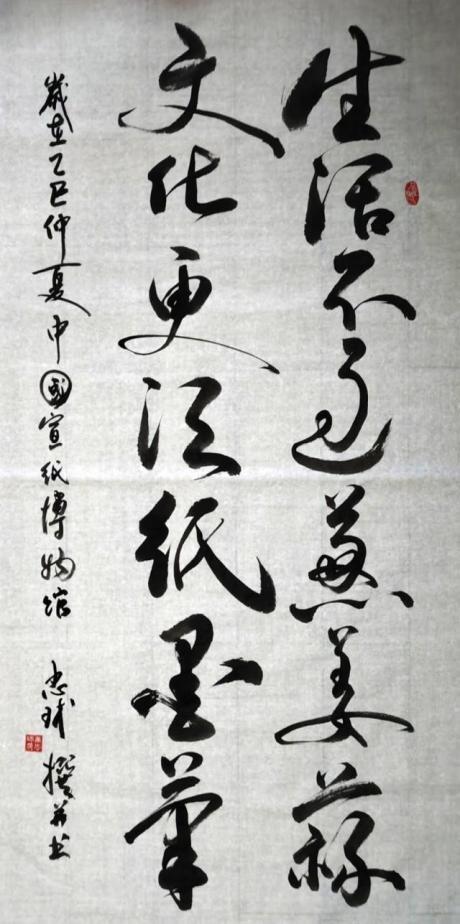 生活不过葱姜蒜
文化更须纸墨笔
岁在乙巳仲夏中国宣纸博物馆 忠球撰并书